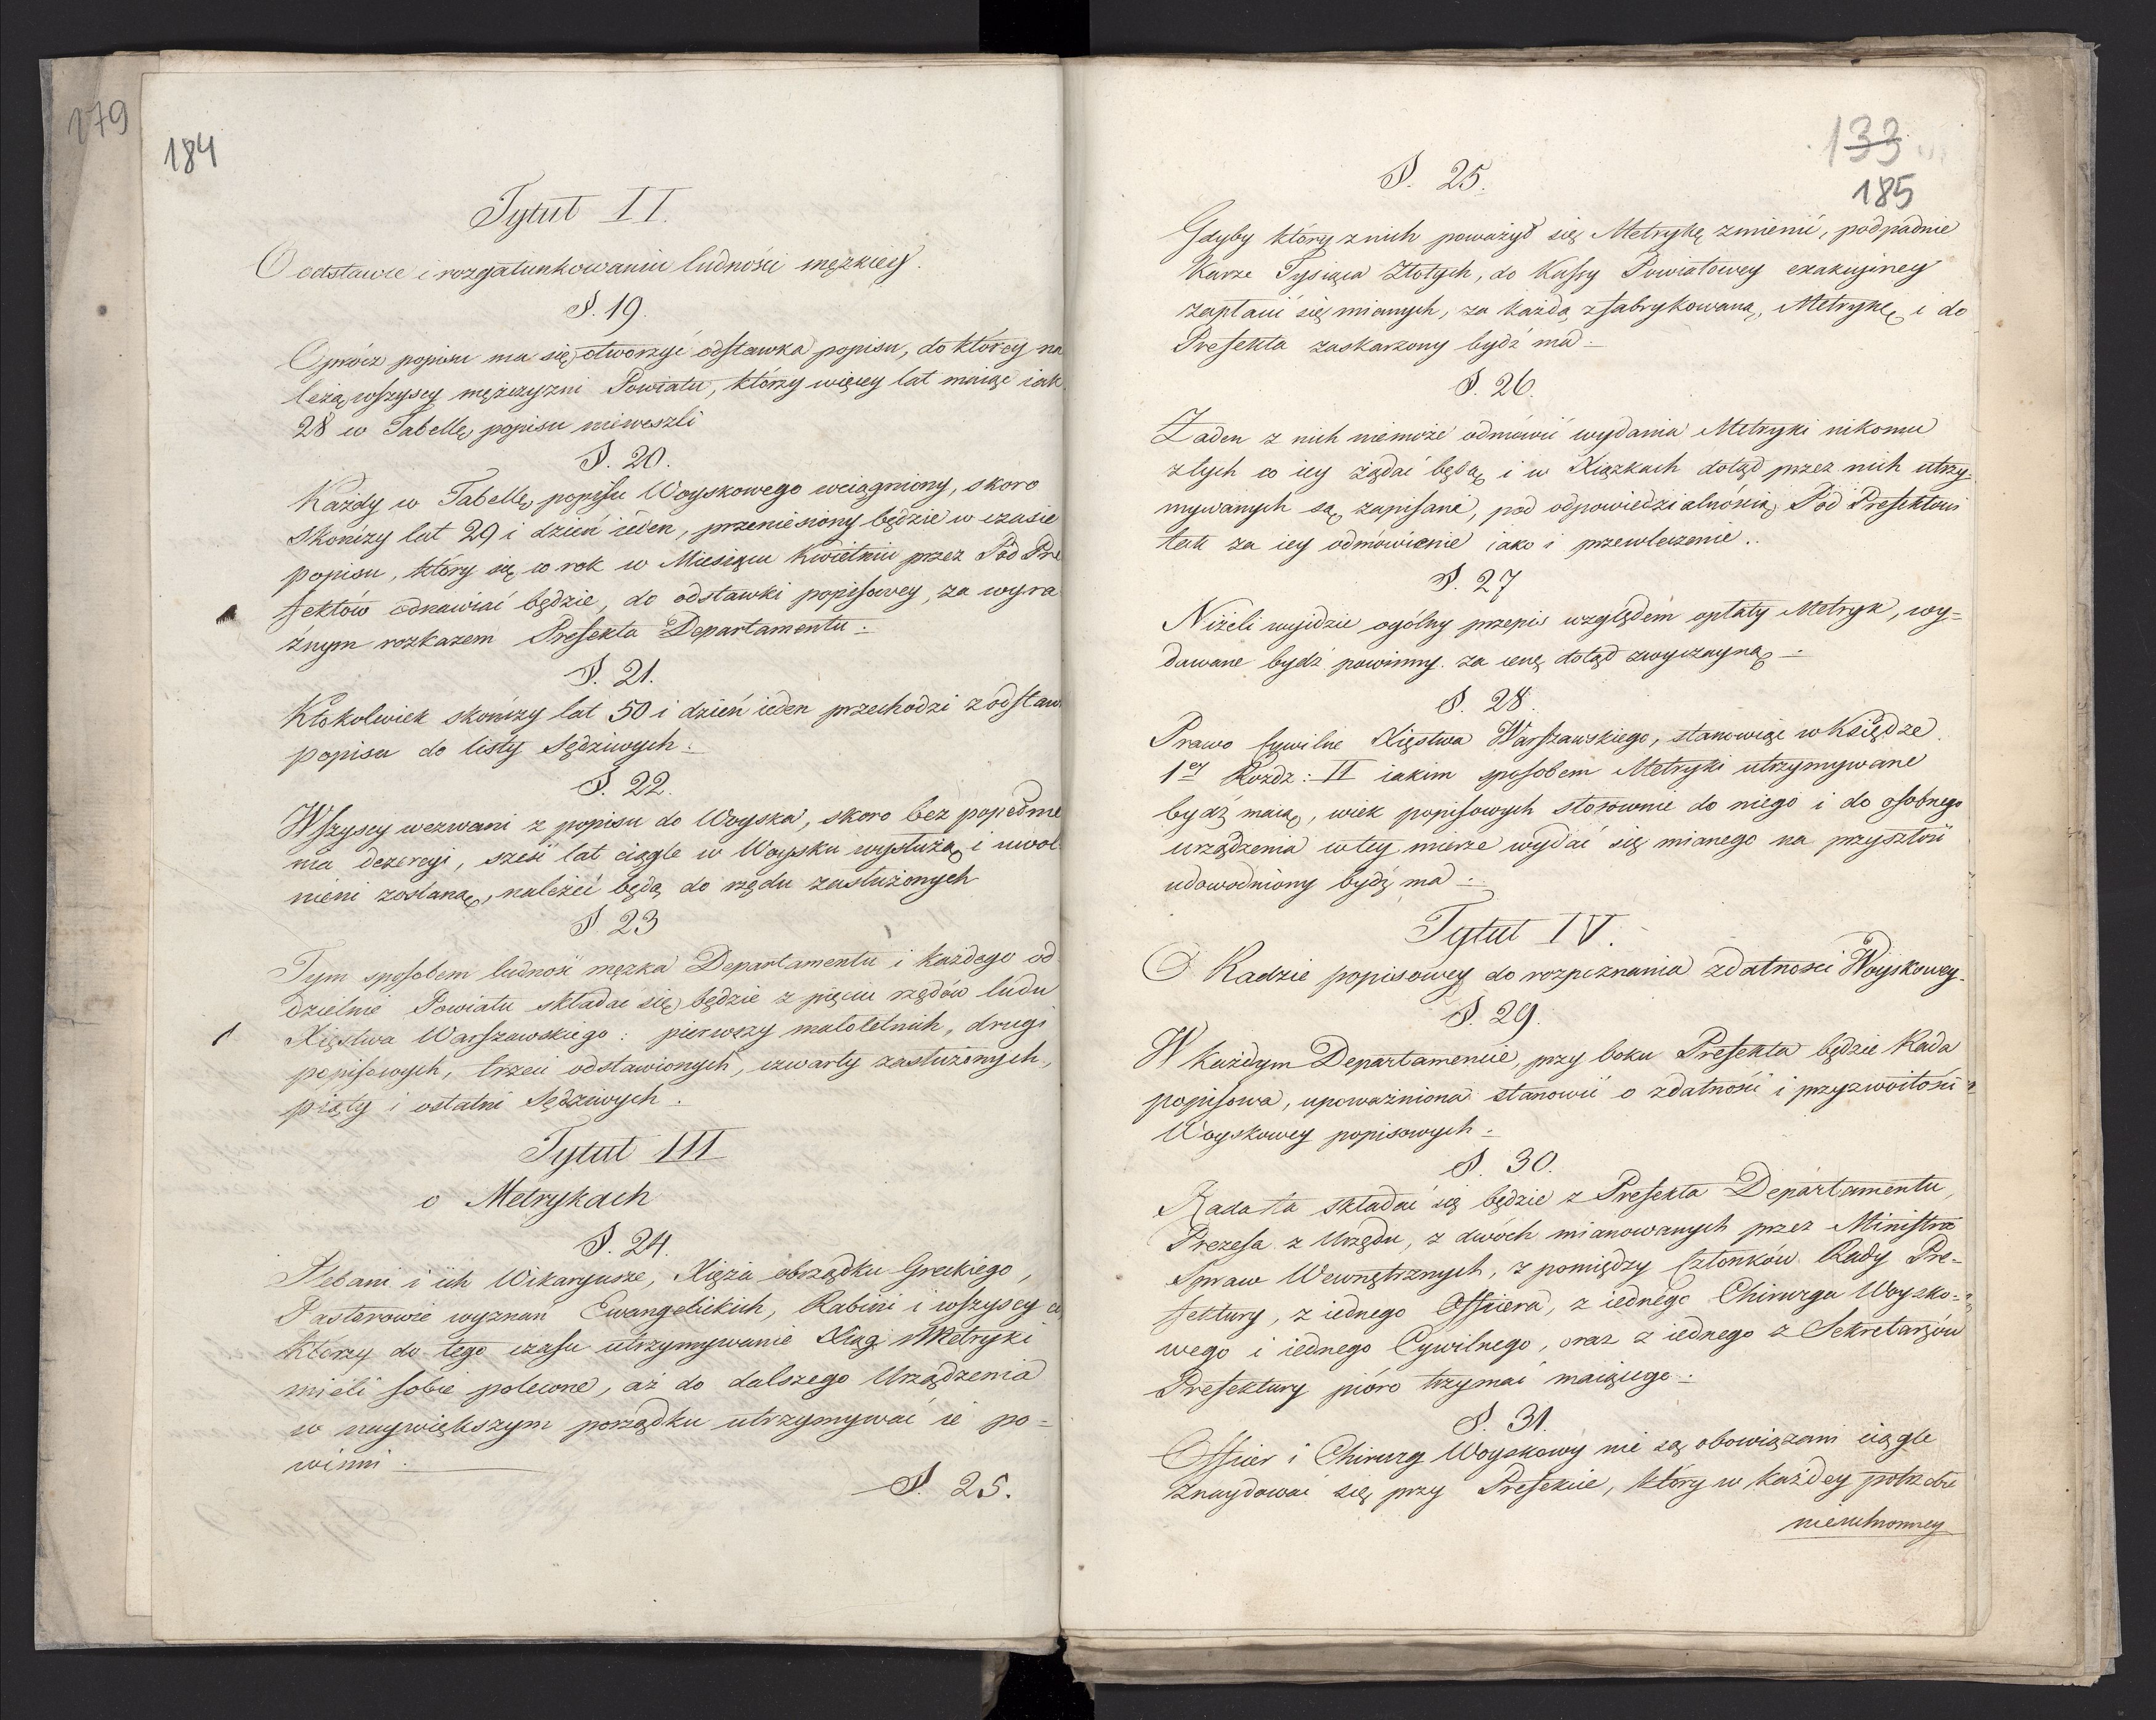 179
184
Tytuł II.
O odstawce i rozgatunkowaniu ludności męzkiey.
§. 19.
Oprócz popisu ma się otworzyć odstawka popisu, do którey na
leżą wszyscy mężczyzni Powiatu, którzy więcey lat maiąc iak
28 w Tabellę popisu nieweszli
§. 20.
Każdy w Tabellę popisu Woyskowego wciągniony, skoro
skończy lat 29 i dzień ieden, przeniesiony będzie w czasie
popisu, który się co rok w Miesiącu Kwietniu przez Pod Pre
fektów odnawiać będzie, do odstawki popisowey, za wyra
źnym rozkazem Prefekta Departamentu.
§. 21.
Ktokolwiek skończy lat 50 i dzień ieden przechodzi z odstaw
popisu do listy Sędziwych.
§. 22.
Wszyscy wezwani z popisu do Woyska, skoro bez popełnie
nia dezercyi, sześć lat ciągle w Woysku wysłużą i uwol
nieni zostaną, należeć będą do rzędu zasłużonych
§. 23
Tym sposobem ludność męzka Departamentu i każdego od
dzielnie Powiatu składać się będzie z pięciu rzędów ludu
Xięstwa Warszawskiego: pierwszy małoletnich, drugi
popisowych, trzeci odstawionych, czwarty zasłużonych,
piąty i ostatni Sędziwych.
Tytuł III
o Metrykach
§. 24.
Plebani i ich Wikaryusze, Xięża obrządku Greckiego,
Pasterowie wyznań Ewangelickich, Rabini i wszyscy ci,
którzy do tego czasu utrzymywanie Xiąg Metryki
mieli sobie polecone, aż do dalszego Urządzenia
w naywiększym porządku utrzymywać ie po=
winni.
§. 25.
133
185
§. 25.
Gdyby który z nich poważył się Metrykę zmienić, podpadnie
Karze Tysiąca Złotych, do Kassy Powiatowey exakucyiney
zapłacić się mianych, za każdą zfabrykowaną Metrykę, i do
Prefekta zaskarzony bydź ma.
§. 26.
Żaden z nich niemoże odmówić wydania Metryki nikomu
z tych co iey żądać będą, i w Xiązkach dotąd przez nich utrzy=
mywanych są zapisani, pod odpowiedzialnością Pod Prefektowi
tak za iey odmówienie iako i przewleczenie.
§. 27
Niżeli wyidzie ogólny przepis względem opłaty Metryk, wy=
dawane bydź powinny za cenę dotąd zwyczayną.
§. 28.
Prawo Cywilne Xięstwa Warszawskiego, stanowiąc w Księdze
1ey Rozdz: II iakim sposobem Metryki utrzymywane
bydź maią, wiek popisowych stosownie do niego i do osobnego
urządzenia w tey mierze wydać się mianego na przyszłość
udowodniony bydź ma.
Tytuł IV.
O Radzie popisowey do rozpoznania zdatności Woyskowey.
§. 29.
W każdym Departamencie, przy boku Prefekta będzie Rada
popisowa, upoważniona stanowić o zdatności i przyzwoitości
Woyskowey popisowych.
§. 30.
Rada ta składać się będzie z Prefekta Departamentu,
Prezesa z Urzędu, z dwóch mianowanych przez Ministra
Spraw Wewnętrznych, z pomiędzy Członków Rady Pre=
fektury, z iednego Officera, z iednego Chirurga Woysko=
wego i iednego Cywilnego, oraz z iednego z Sekretarzów
Prefektury pióro trzymać maiącego.
§. 31.
Officer i Chirurg Woyskowy nie są obowiązani ciągle
znaydować się przy Prefekcie, który w każdey potrzebie
nieuchronney